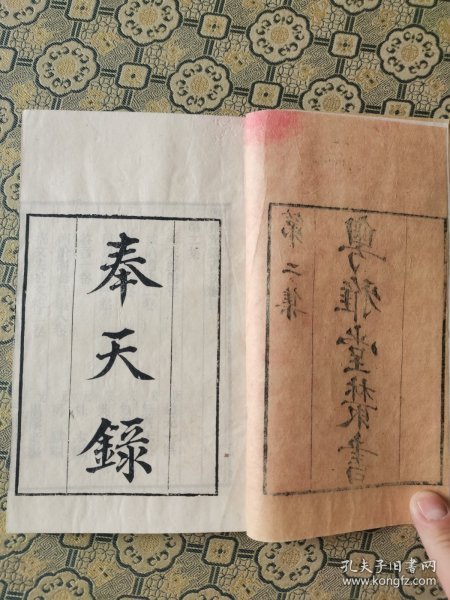 粤雅堂丛書
第二集
奉天錄
孔夫子旧书网
www.kongfz.com